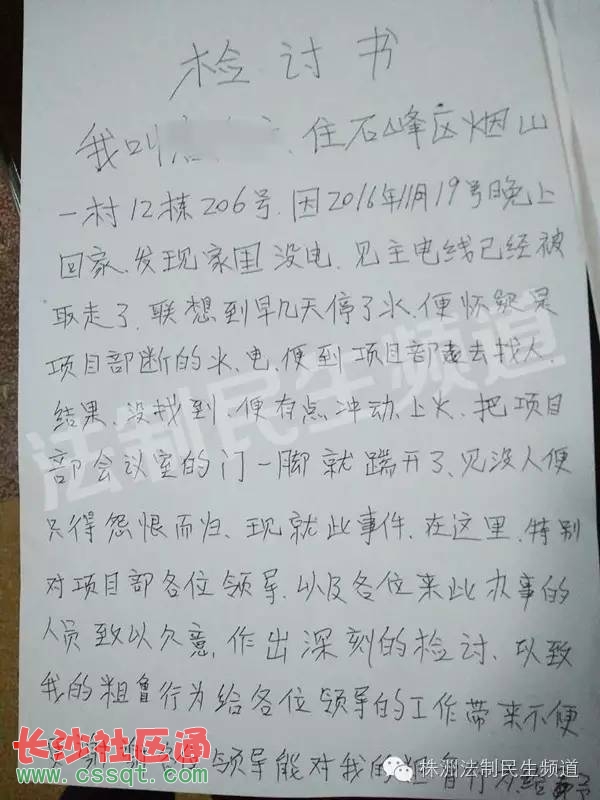 检讨书
我叫 住石峰区烟山
一村12栋206号.因2016年11月19号晚上
回家.发现家里没电.见主电线已经被
取走了.联想到早几天停了水.便怀疑是
项目部断的水、电.便到项目部去找人.
结果、没找到、便有点冲动、上火、把项目
部会议室的门一脚就踹开了、见没人便
只得怨恨而归、现就此事件.在这里.特别
对项目部各位领导.以及各位来此办事的
人员致以欠意,作出深刻的检讨、以致
我的粗鲁行为给各位领导的工作带来不便
领导能对我的粗鲁行为给予
法制民生频道
长沙社区通
www.cssqt.com
株洲法制民生频道